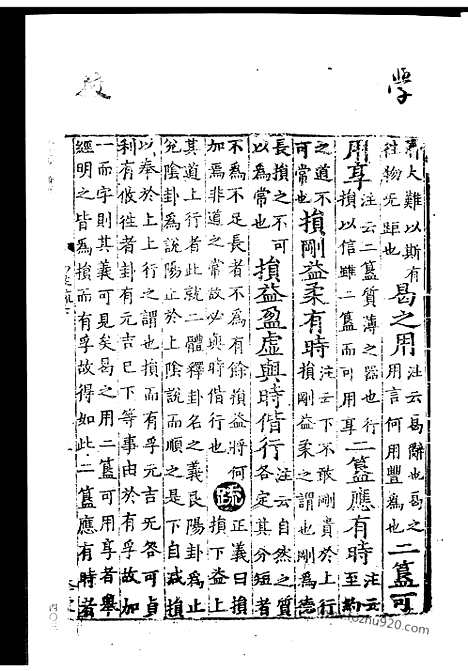 學
大難以斯有往物无距也曷之用注云曷辭也曷之用言何用豐爲也二簋可
用享注云二簋質薄之器也行損以信雖二簋而可用享二簋應有時注云至約
之道不可常也損剛益柔有時注云下不敢剛貴於上行損剛益柔之謂也剛爲德
長損之不可以爲常也損益盈虛與時偕行注云自然之質各定其分短者
不爲不足長者不爲有餘損益將何加焉非道之常故必與時偕行也疏正義曰損下益上
其道上行者此就二體釋卦名之義艮陽卦爲止
兌陰卦爲說陽止於上陰說而順之是下自减損
以奉於上上行之謂也損而有孚元吉无咎可貞
利有攸徃者卦有元吉已下等事由於有孚故加
一而字則其義可見矣曷之用二簋可用享者舉
經明之皆爲損而有孚故得如此二簋應有時者
四〇三
keizhu920.com